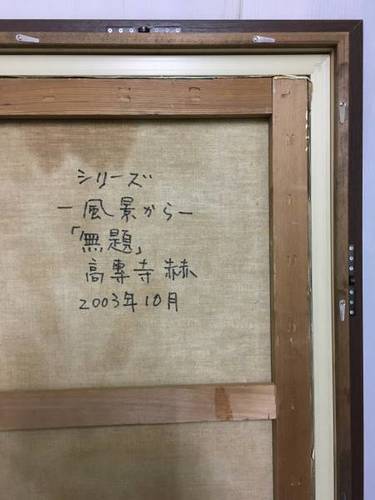 シリーズ
－風景から－
「無題」
高專寺赫
2003年10月